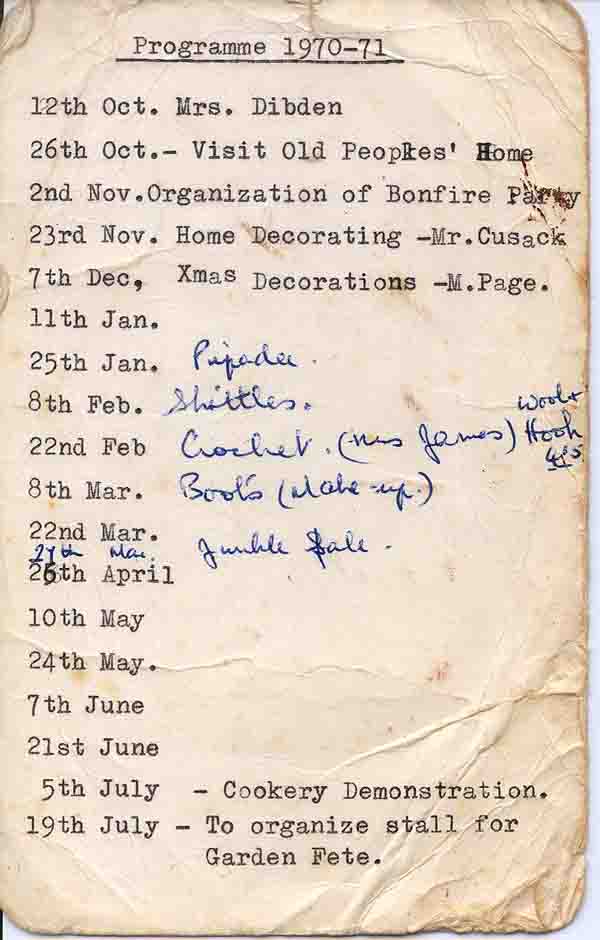 Programme 1970-71
12th Oct. Mrs. Dibden
26th Oct.- Visit Old Peoples' Home
2nd Nov.Organization of Bonfire Party
23rd Nov. Home Decorating -Mr.Cusack
7th Dec, Xmas Decorations -M.Page.
11th Jan.
25th Jan.
8th Feb. Skittles.
22nd Feb Crochet. (Mrs James) Wool + Hook
8th Mar. Boots (Make-up.)
22nd Mar.
27th Mar. Jumble Sale.
26th April
10th May
24th May.
7th June
21st June
5th July - Cookery Demonstration.
19th July - To organize stall for
Garden Fete.